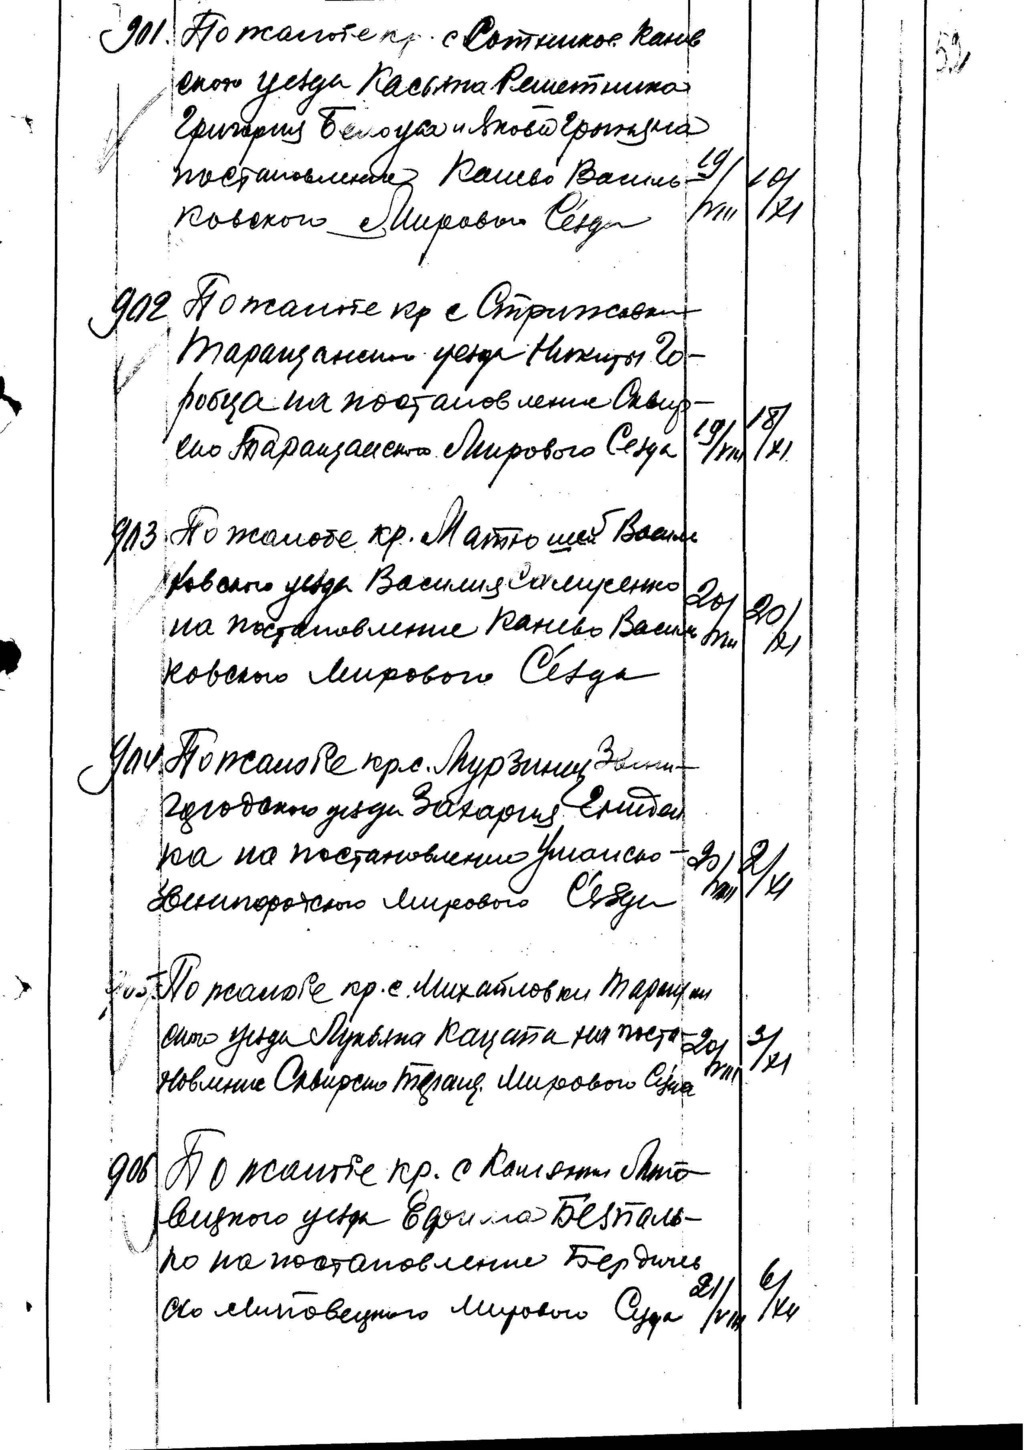 59
901. По жалобе кр. с Сотников Канев
ского уезда Касьяна Решетника
Григория Белоуса и Якова
постановление Канево Василь-
ковского Мирового Сезда
19/VIII 10/XI
902 По жалобе кр с Стрижевки
Таращанского уезда Никиты Го-
робца на постановление Сквир-
ско Таращанского Мирового Сезда
19/VIII 18/XI
903 По жалобе кр. Матюшей Василь
ковского уезда Василия
на постановление Канево Василь
ковского Мирового Сезда
20/VIII 20/XI
904 По жалобе кр с. Мурзинец Звени-
городского уезда Захария
ка на постановление Уманско-
Звенигородского Мирового Сезда
20/VIII 2/XI
905 По жалобе кр. с. Михайловки Таращан
ского уезда Лукьяна Кацапа на поста-
новление Сквирско Таращ. Мирового Сезда
20/VIII 3/XI
906 По жалобе кр. с Каменки Липо
вецкого уезда Ефима Безпаль-
ко на постановление Бердичев
ско Липовецкого Мирового Сезда
21/VIII 6/XII